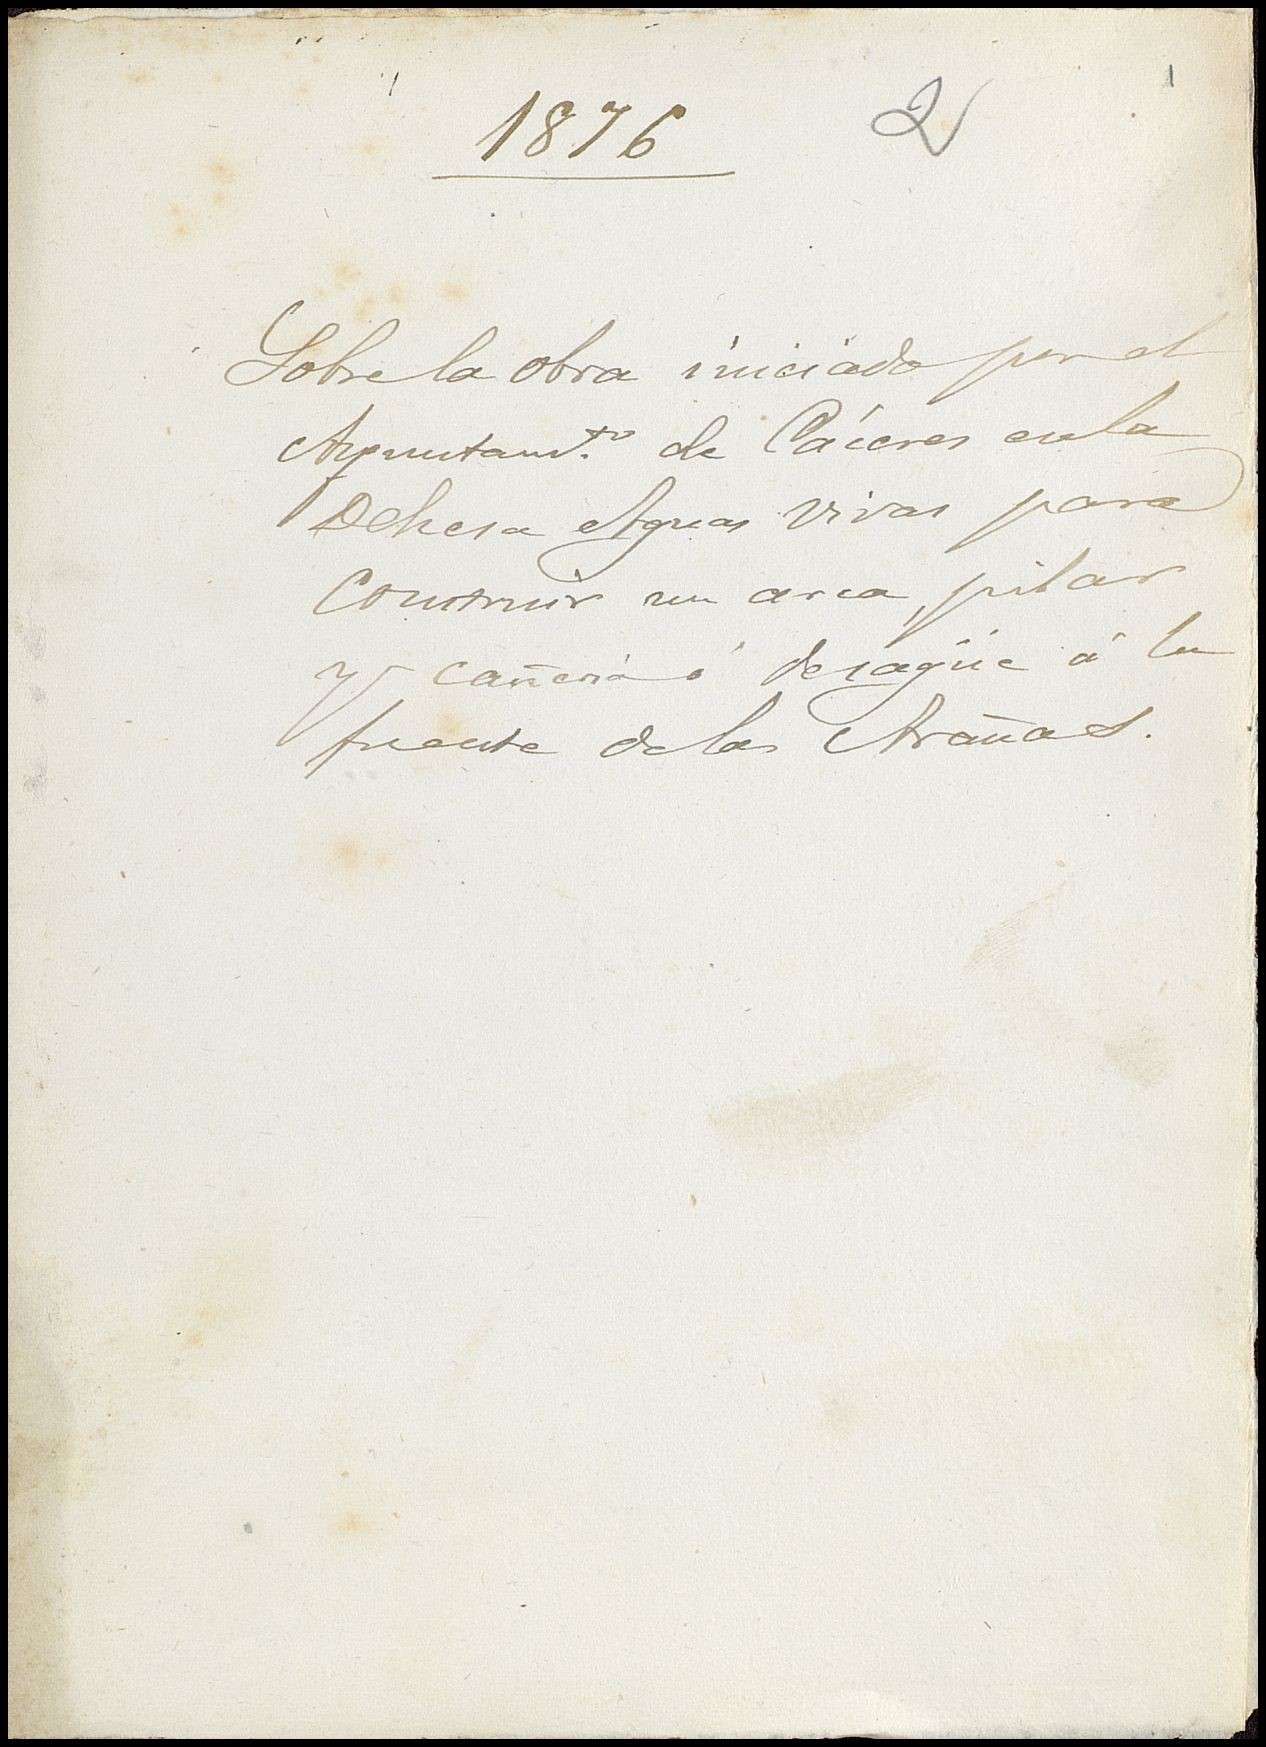 1876 2 1
Sobre la obra iniciada por el
Ayuntam.to de Cáceres en la
Dehesa Aguas vivas para
Construir un arca, pilar
y cañería ó desagüe á la
fuente de las Arañas.